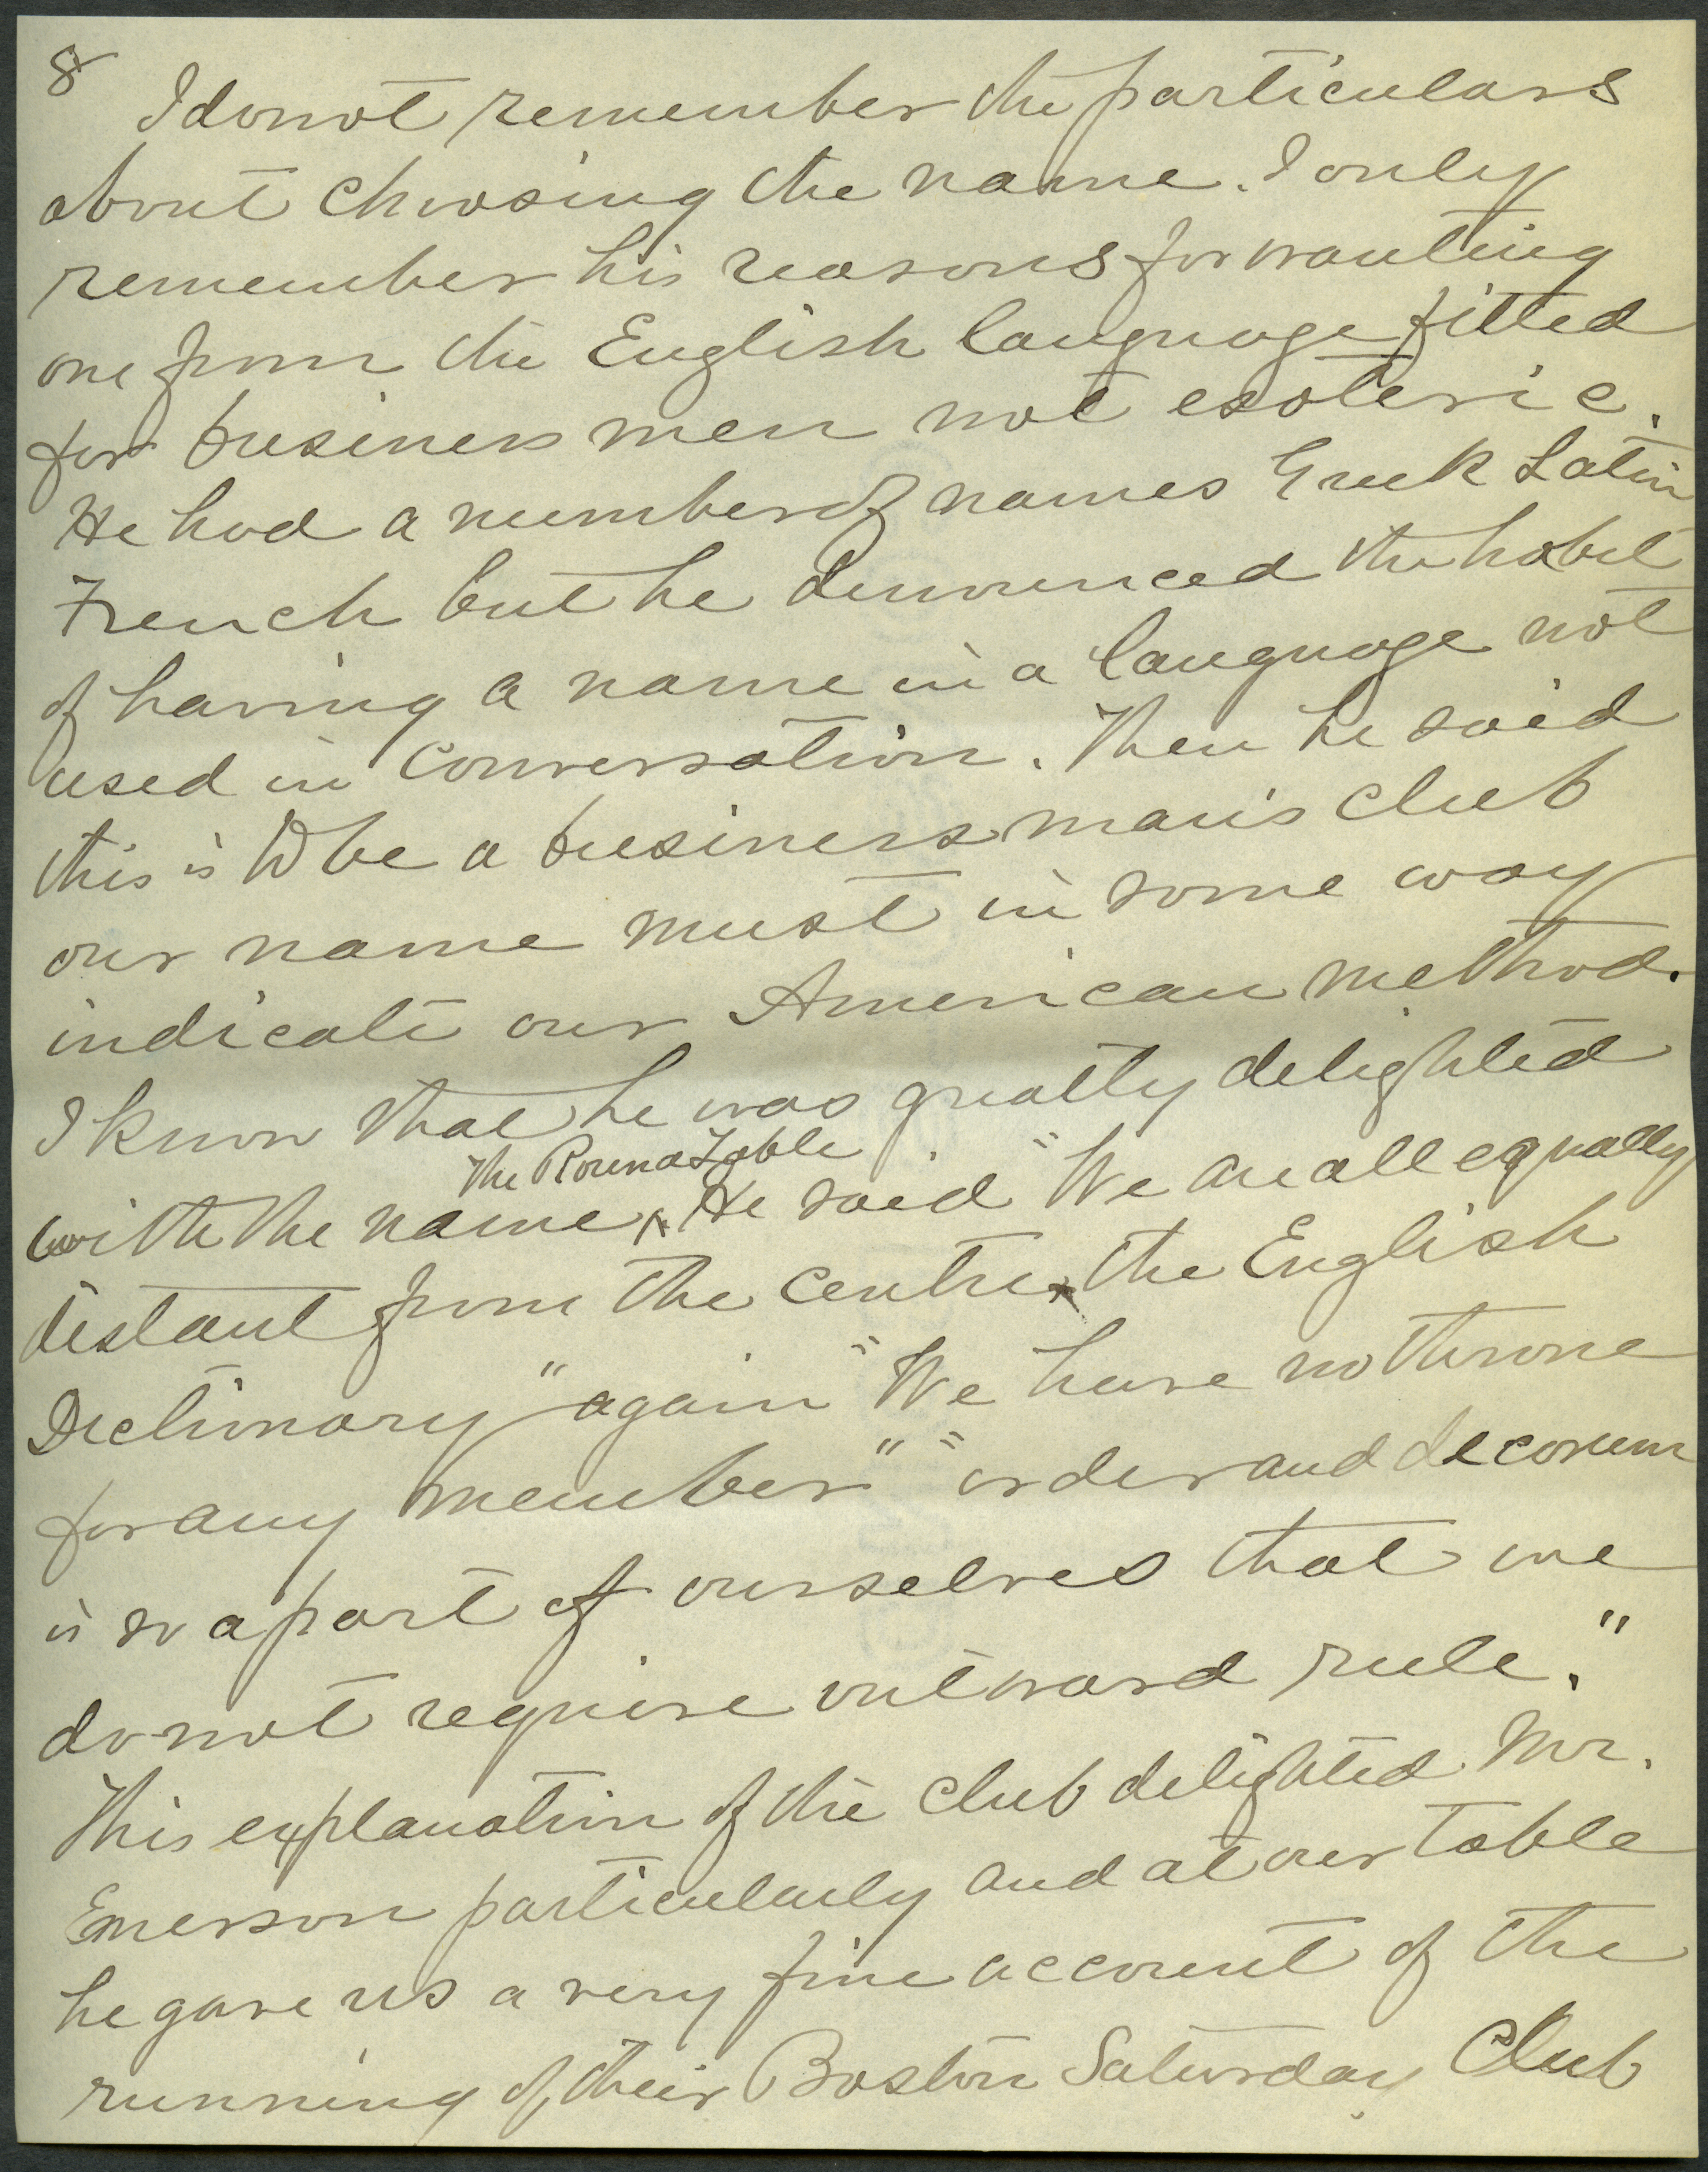 8
I do not remember the particulars
about choosing the name. I only
remember his reasons for wanting
one from the English language fitted
for business men not esoteric.
He had a number of names Greek Latin
French but he denounced the habit
of having a name in a language not
used in conversation. Then he said
this is to be a business man's club
our name must in some way
indicate our American method.
I know that he was greatly delighted
The Round Table
with the name ^ He said "We are all equally
distant from the centre, the English
Dictionary" again "We have no throne
for any member" "order and decorum
is so a part of ourselves that we
do not require outward rule."
This explanation of the club delighted Mr.
Emerson particularly and at our table
he gave us a very fine account of the
running of their Boston Saturday Club